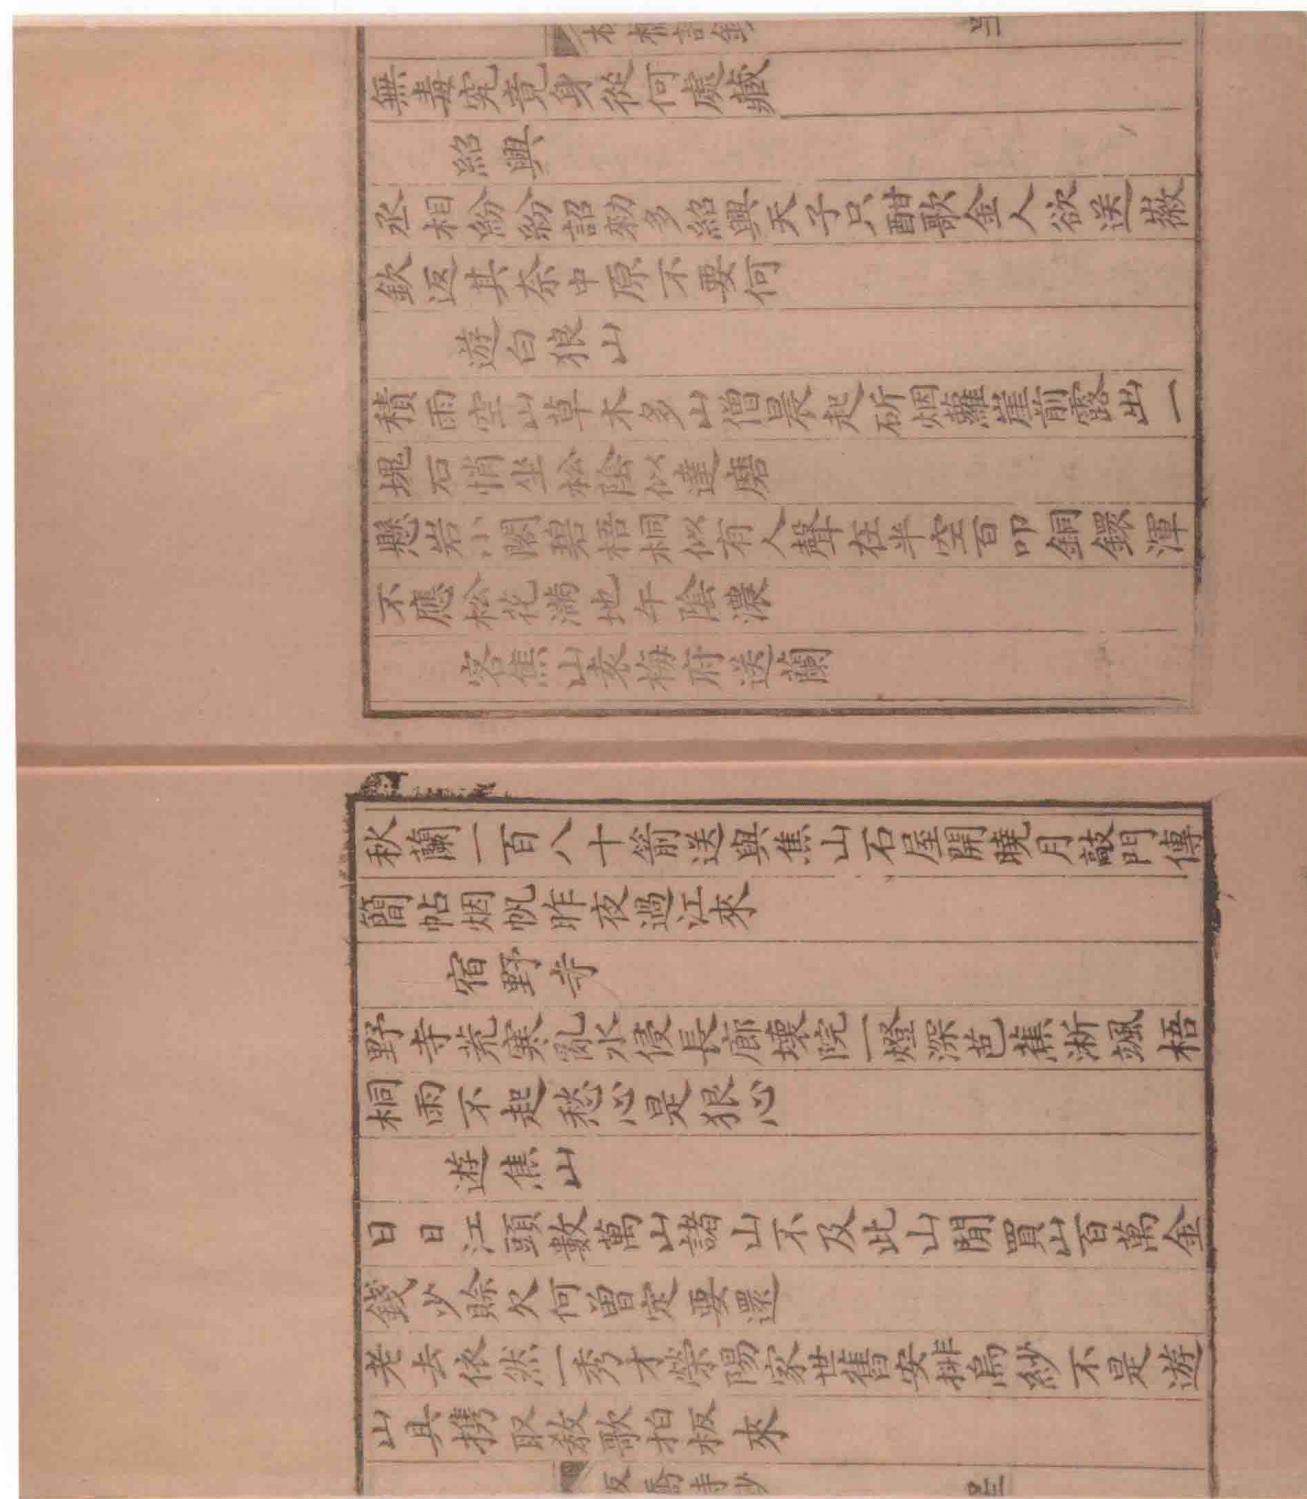 無毒究竟身從何處藏
紹興
丞相紛紛詔勑多紹興天子只酣歌金人欲送徽
欽返其奈中原不要何
遊白狼山
積雨空山草木多山僧晨起斫烟蘿崖前露出一
塊石悄坐松陰似達磨
懸岩小閣碧梧桐似有人聲在半空百叩銅鐶渾
不應松花滿地午陰濃
客焦山袁梅府送蘭
秋蘭一百八十箭送與焦山石屋開曉月敲門傳
簡帖烟帆昨夜過江來
宿野寺
野寺荒寒亂水侵長廊壞院一燈深芭蕉淅颯梧
桐雨不起愁心是狠心
遊焦山
日日江頭數萬山諸山不及此山閒買山百萬金
錢少賒欠何曾定要還
老去依然一秀才滎陽家世舊安排烏紗不是遊
山具携取教歌拍板來